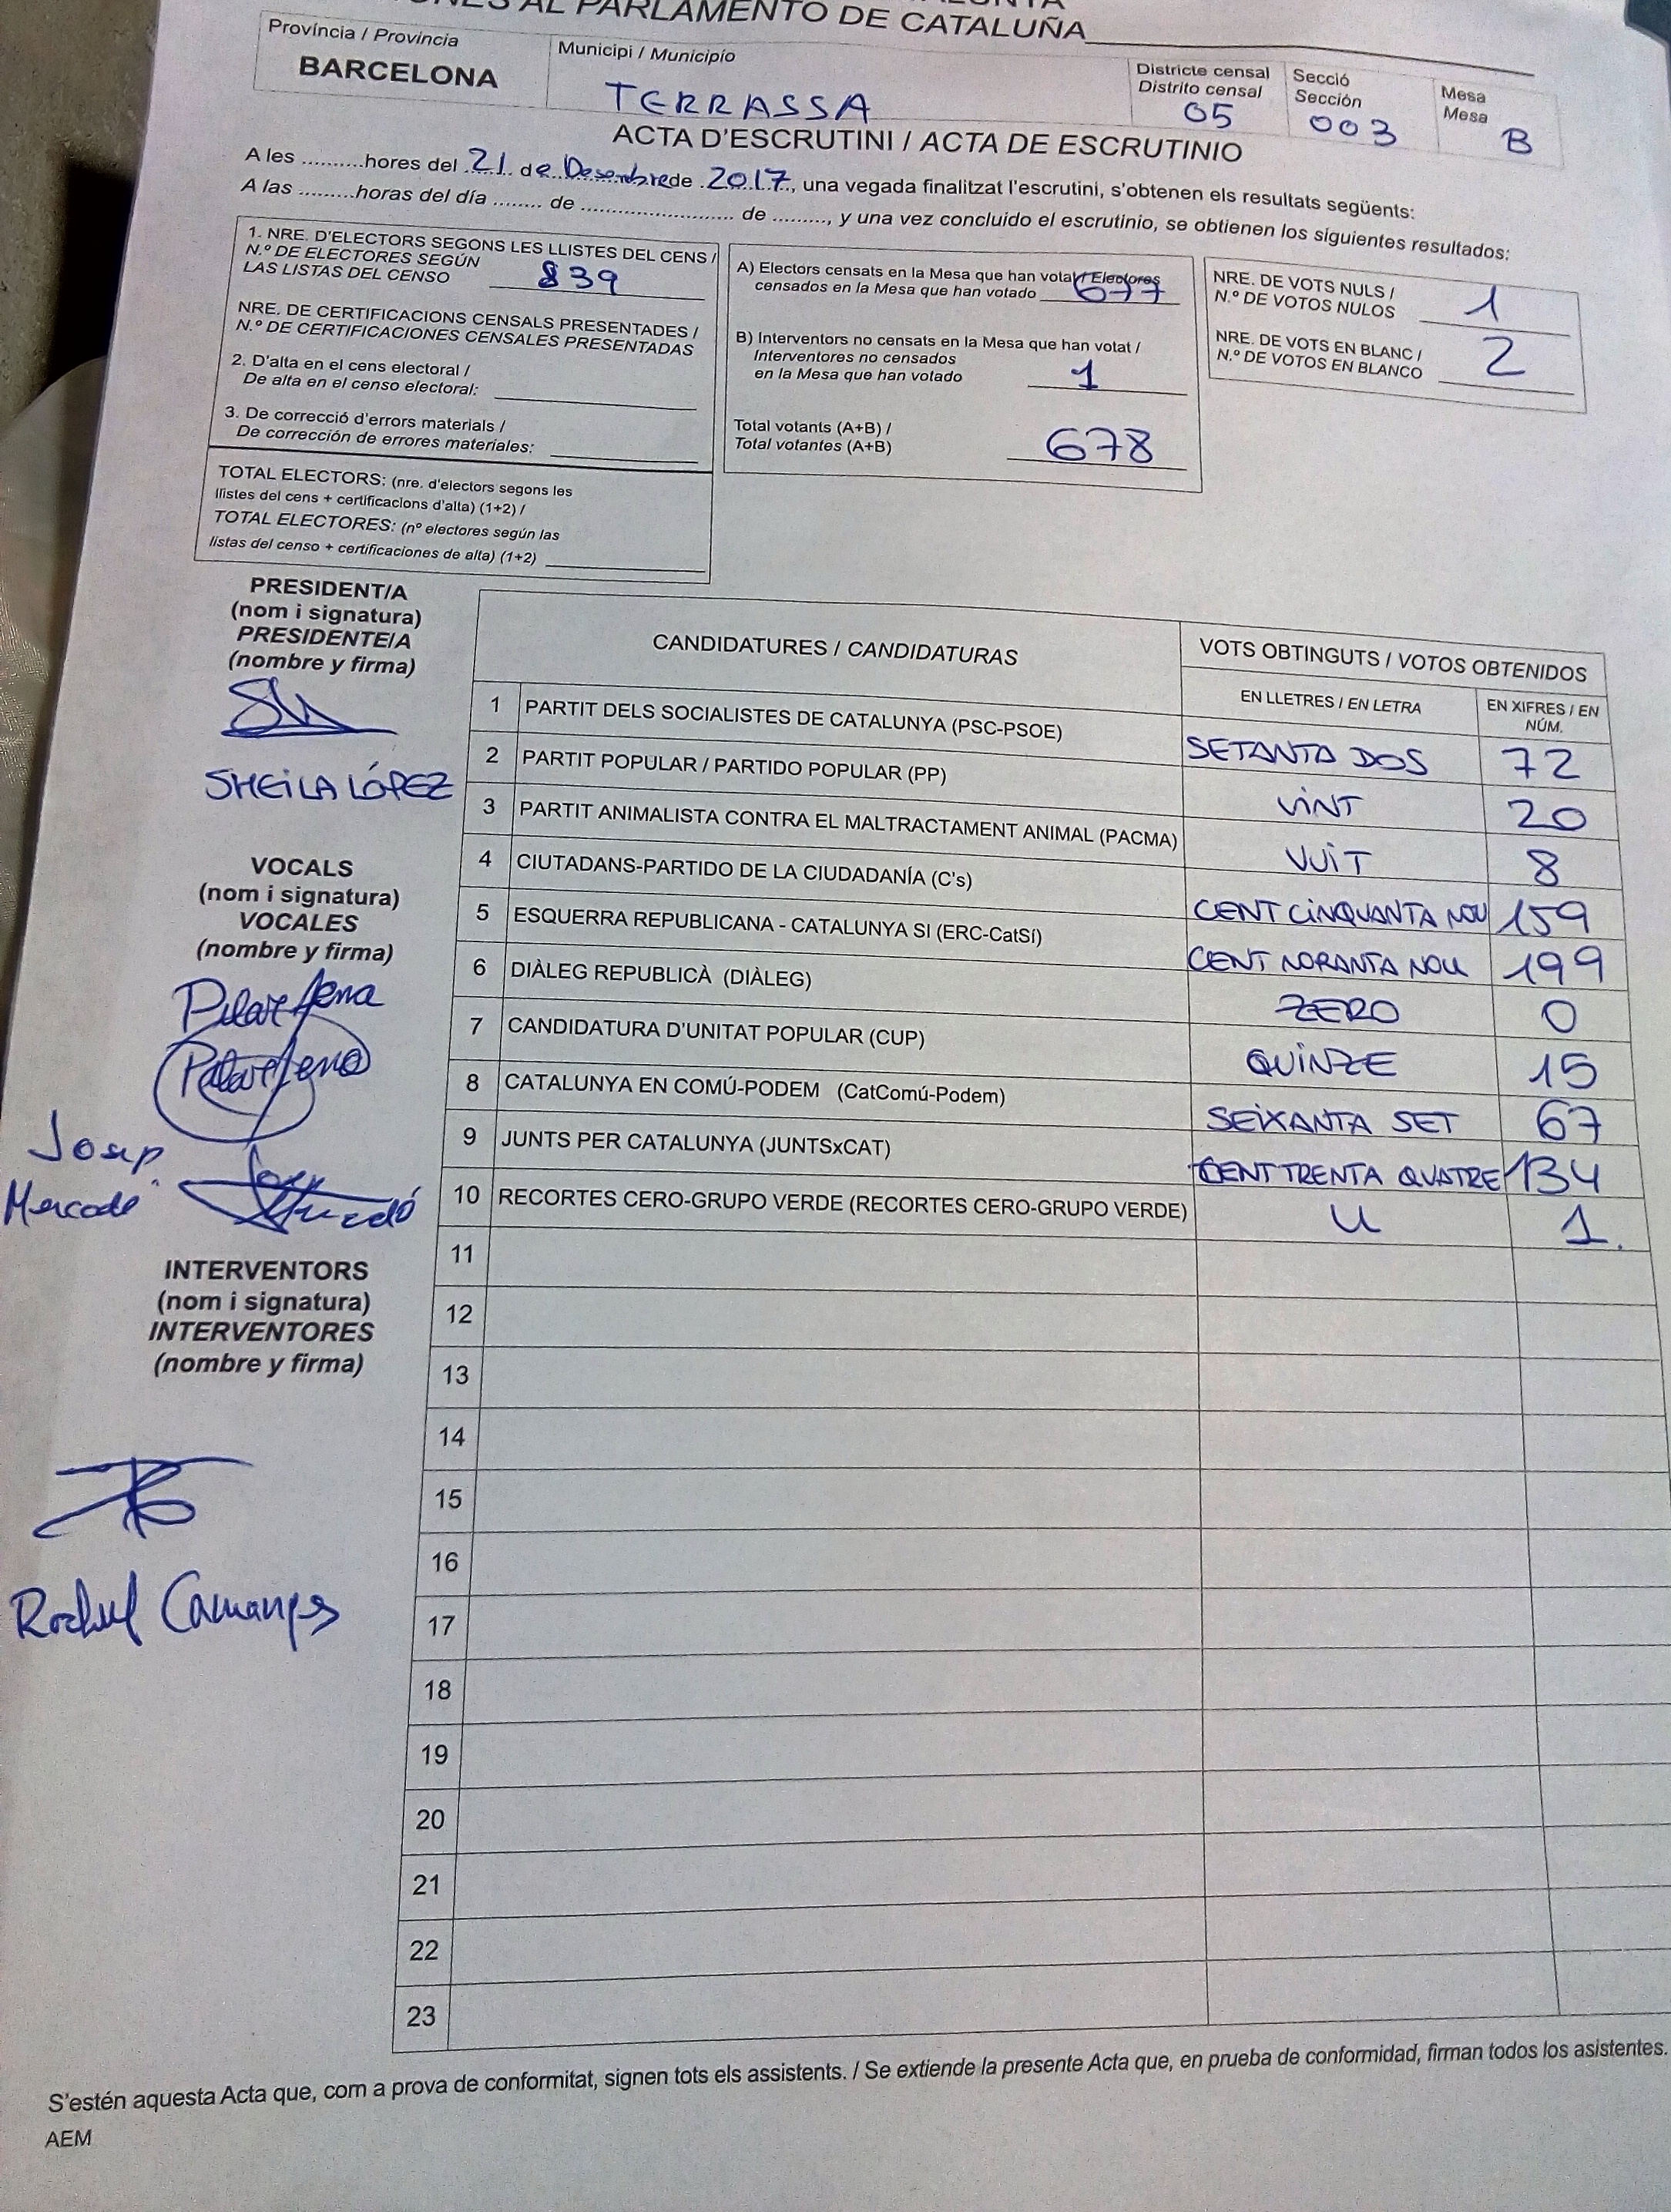 AL PARLAMENTO DE CATALUÑA
Província / Provincia
BARCELONA
Municipi / Municipio
TERRASSA
Districte censal
Distrito censal
05
Secció
Sección
003
Mesa
Mesa
B
ACTA D'ESCRUTINI / ACTA DE ESCRUTINIO
A les ..........hores del 21 de Desembre de 2017, una vegada finalitzat l'escrutini, s'obtenen els resultats següents:
A las ..........horas del día ........ de ............................ de ........., y una vez concluido el escrutinio, se obtienen los siguientes resultados:
1. NRE. D'ELECTORS SEGONS LES LLISTES DEL CENS /
N.º DE ELECTORES SEGÚN
LAS LISTAS DEL CENSO 839
NRE. DE CERTIFICACIONS CENSALS PRESENTADES /
N.º DE CERTIFICACIONES CENSALES PRESENTADAS
2. D'alta en el cens electoral /
De alta en el censo electoral:
3. De correcció d'errors materials /
De corrección de errores materiales:
TOTAL ELECTORS: (nre. d'electors segons les
llistes del cens + certificacions d'alta) (1+2) /
TOTAL ELECTORES: (nº electores según las
listas del censo + certificaciones de alta) (1+2)
A) Electors censats en la Mesa que han votat / Electores
censados en la Mesa que han votado 677
B) Interventors no censats en la Mesa que han votat /
Interventores no censados
en la Mesa que han votado 1
Total votants (A+B) /
Total votantes (A+B) 678
NRE. DE VOTS NULS /
N.º DE VOTOS NULOS 1
NRE. DE VOTS EN BLANC /
N.º DE VOTOS EN BLANCO 2
PRESIDENT/A
(nom i signatura)
PRESIDENTE/A
(nombre y firma)
SHEILA LÓPEZ
VOCALS
(nom i signatura)
VOCALES
(nombre y firma)
Josep
Mercadé
INTERVENTORS
(nom i signatura)
INTERVENTORES
(nombre y firma)
CANDIDATURES / CANDIDATURAS
VOTS OBTINGUTS / VOTOS OBTENIDOS
EN LLETRES / EN LETRA
EN XIFRES / EN
NÚM.
1 PARTIT DELS SOCIALISTES DE CATALUNYA (PSC-PSOE) SETANTA DOS 72
2 PARTIT POPULAR / PARTIDO POPULAR (PP) VINT 20
3 PARTIT ANIMALISTA CONTRA EL MALTRACTAMENT ANIMAL (PACMA) VUIT 8
4 CIUTADANS-PARTIDO DE LA CIUDADANÍA (C's) CENT CINQUANTA NOU 159
5 ESQUERRA REPUBLICANA - CATALUNYA SI (ERC-CatSí) CENT NORANTA NOU 199
6 DIÀLEG REPUBLICÀ (DIÀLEG) ZERO 0
7 CANDIDATURA D'UNITAT POPULAR (CUP) QUINZE 15
8 CATALUNYA EN COMÚ-PODEM (CatComú-Podem) SEIXANTA SET 67
9 JUNTS PER CATALUNYA (JUNTSxCAT) CENT TRENTA QUATRE 134
10 RECORTES CERO-GRUPO VERDE (RECORTES CERO-GRUPO VERDE) U 1.
11
12
13
14
15
16
17
18
19
20
21
22
23
S'estén aquesta Acta que, com a prova de conformitat, signen tots els assistents. / Se extiende la presente Acta que, en prueba de conformidad, firman todos los asistentes.
AEM